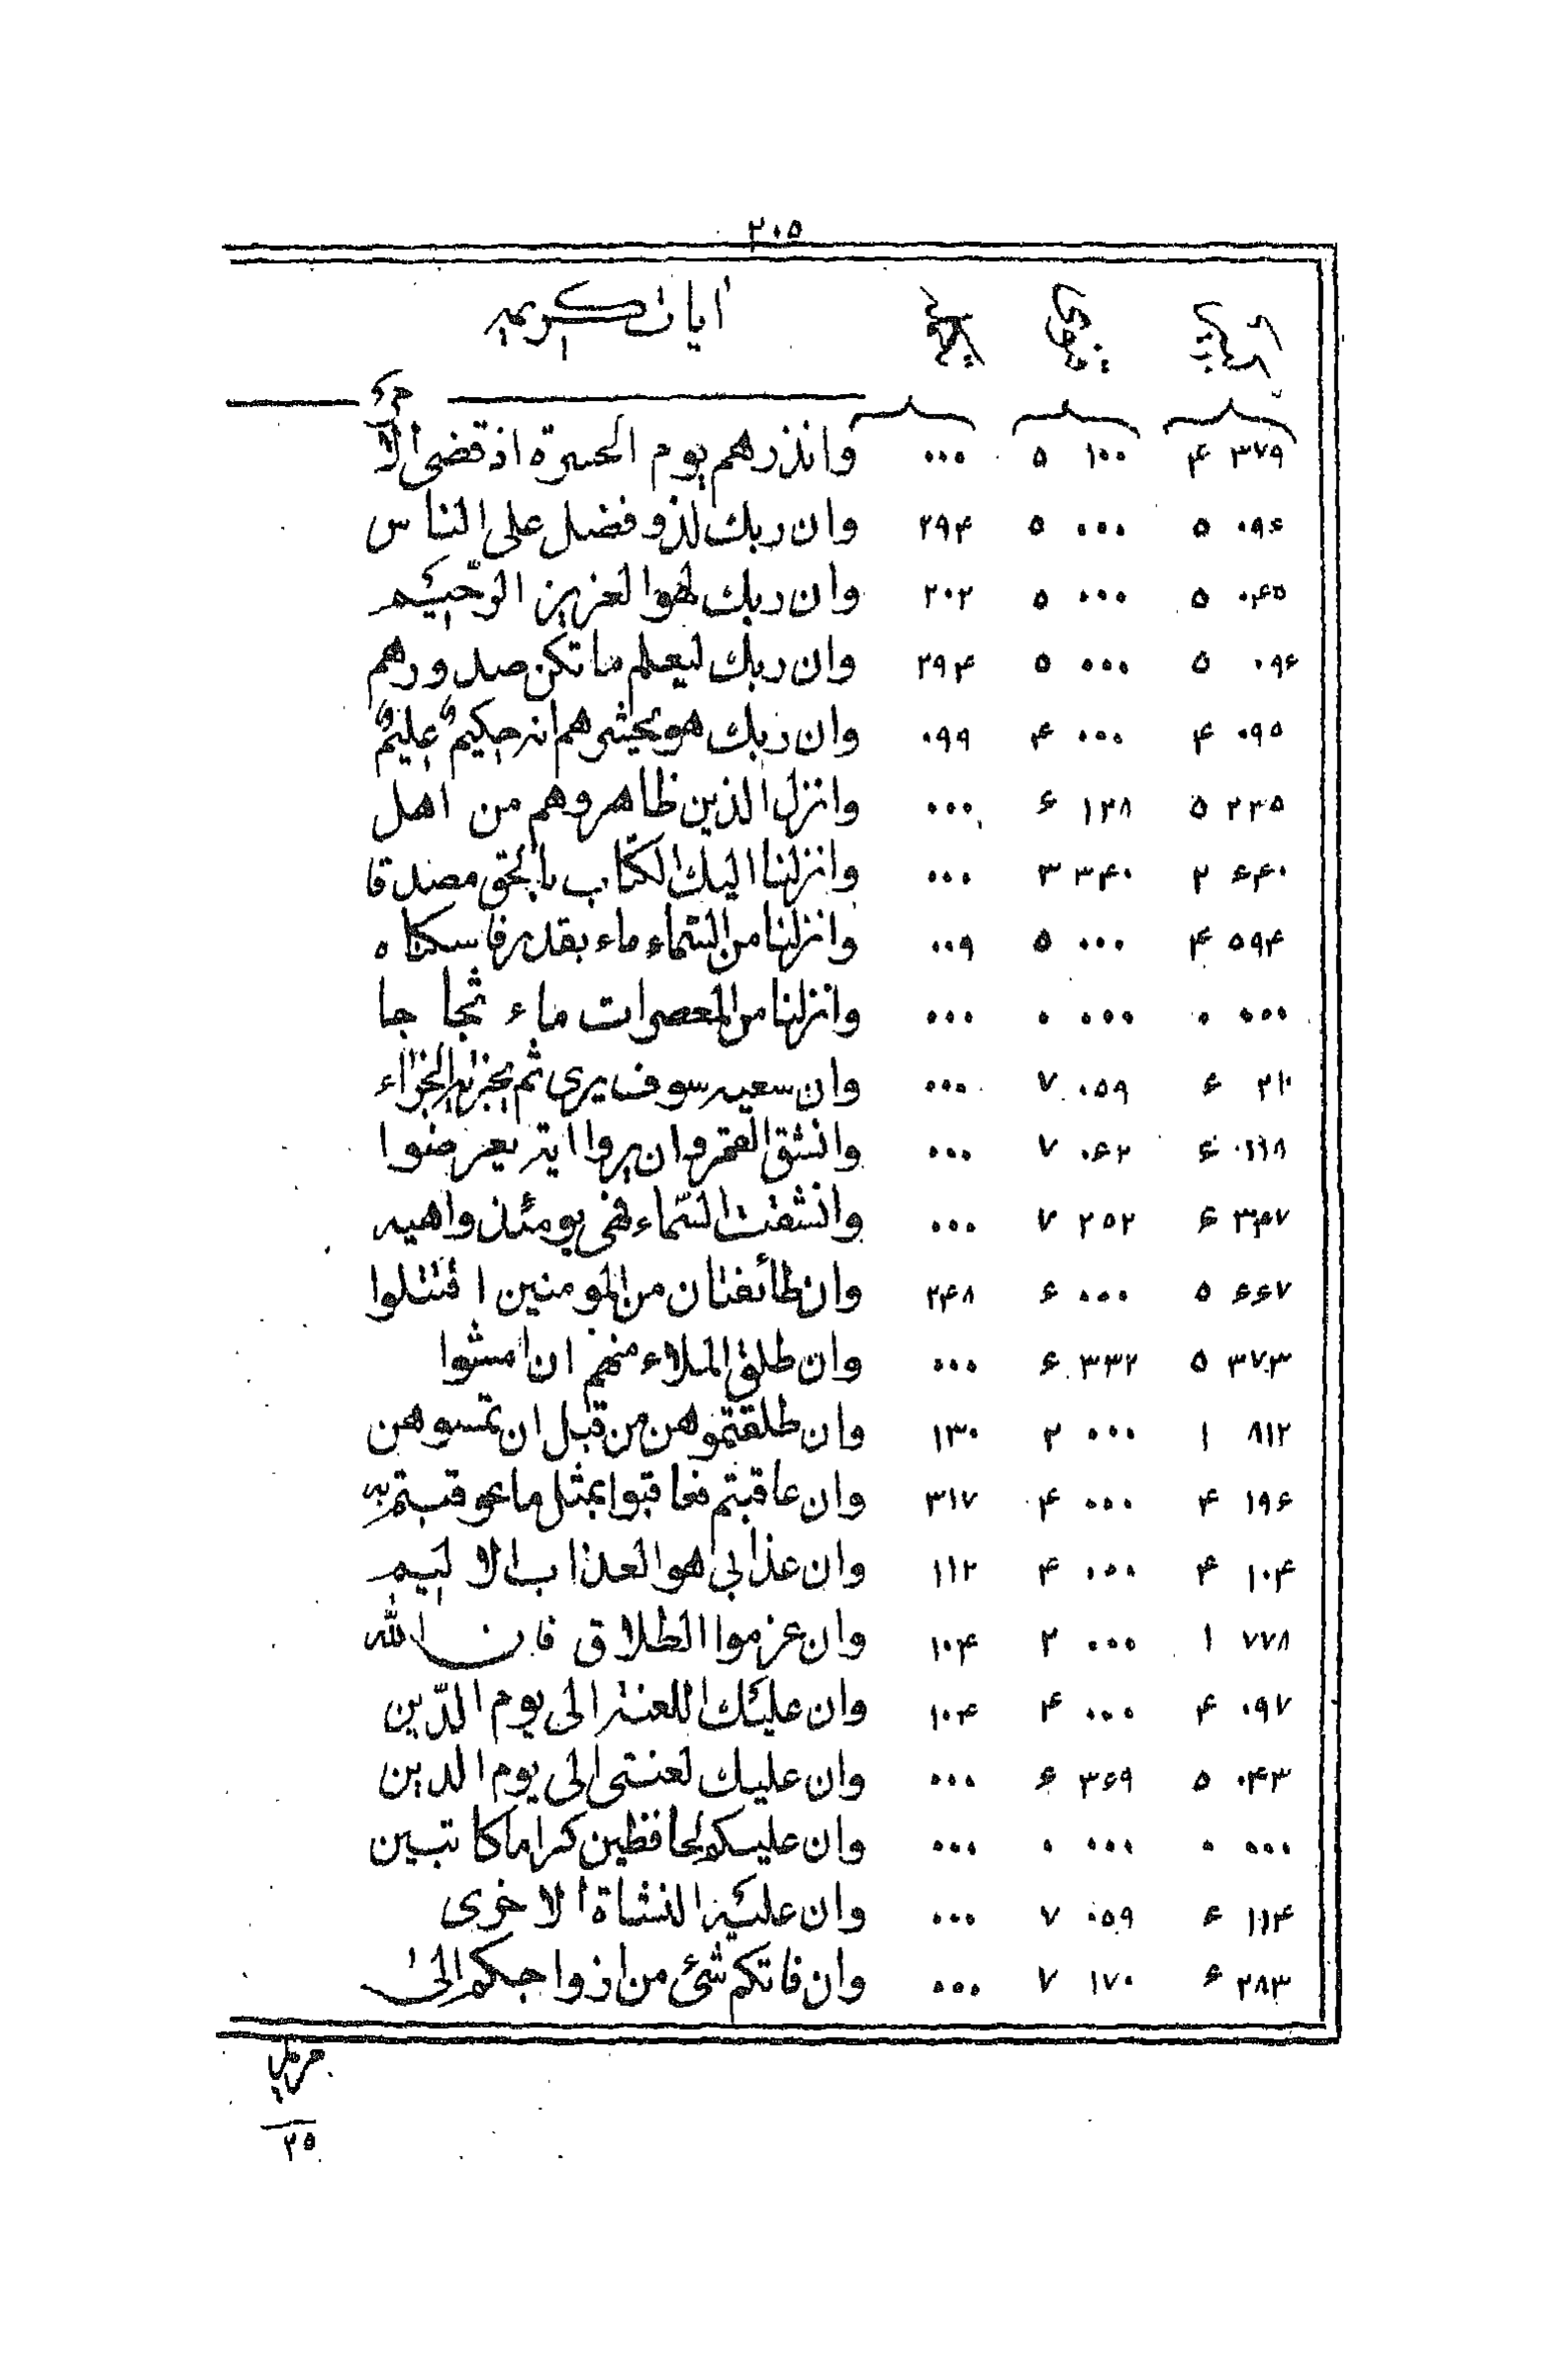 ۲۰۵
ایات کریمه
۳۷۹ ۴ ۱۰۰ ۵ ۰۰۰ وانذرهم یوم الحسرة اذ قضی الا
۰۹۶ ۵ ۰۰۰ ۵ ۲۹۴ وان ربك لذو فضل علی الناس
۰۴۵ ۵ ۰۰۰ ۵ ۲۰۲ وان ربك لهو العزیز الرّحیم
۰۹۶ ۵ ۰۰۰ ۵ ۲۹۴ وان ربك لیعلم ما تکن صدورهم
۰۹۵ ۴ ۰۰۰ ۴ ۰۹۹ وان ربك هو یحشرهم انه حکیم علیم
۲۳۵ ۵ ۱۲۸ ۶ ۰۰۰ وانزل الذین ظاهروهم من اهل
۶۴۰ ۲ ۳۴۰ ۳ ۰۰۰ وانزلنا الیك الکتاب بالحق مصدقا
۵۹۴ ۴ ۰۰۰ ۵ ۰۰۹ وانزلنا من السّماء ماء بقدر فاسکناه
۰۰۰ ۰ ۰۰۰ ۰ ۰۰۰ وانزلنا من المعصرات ماء ثجا جا
۲۱۰ ۶ ۰۵۹ ۷ ۰۰۰ وان سعیه سوف یری ثم یجزیه الجزاء
۱۱۸ ۶ ۰۶۲ ۷ ۰۰۰ وانشق القمر وان یروا ایة یعرضوا
۳۴۷ ۶ ۲۵۲ ۷ ۰۰۰ وانشقت السّماء فهی یومئذ واهیه
۶۶۷ ۵ ۰۰۰ ۶ ۲۴۸ وان طائفتان من المومنین اقتتلوا
۳۷۳ ۵ ۳۳۲ ۶ ۰۰۰ وان طلق الملاء منهم ان امشوا
۸۱۲ ۱ ۰۰۰ ۲ ۱۳۰ وان طلقتموهن من قبل ان تمسوهن
۱۹۶ ۴ ۰۰۰ ۴ ۳۱۷ وان عاقبتم فعاقبوا بمثل ما عوقبتم به
۱۰۴ ۴ ۰۰۰ ۴ ۱۱۲ وان عذابی هو العذاب الا لیم
۷۷۸ ۱ ۰۰۰ ۲ ۱۰۴ وان عزموا الطلاق فان الله
۰۹۷ ۴ ۰۰۰ ۴ ۱۰۴ وان علیك اللعنة الی یوم الدّین
۰۴۳ ۵ ۳۶۹ ۶ ۰۰۰ وان علیك لعنتی الی یوم الدین
۰۰۰ ۰ ۰۰۰ ۰ ۰۰۰ وان علیکم لحافظین کراما کاتبین
۱۱۴ ۶ ۰۵۹ ۷ ۰۰۰ وان علیه النشاة الاخری
۲۸۳ ۶ ۱۷۰ ۷ ۰۰۰ وان فاتکم شئ من ازواجکم الی
۲۵